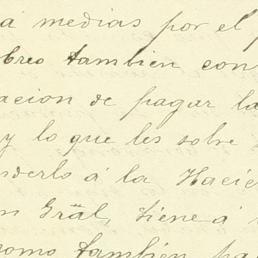 á medias por el p
breo tambien con
acion de pagar la
y lo que les sobre
nderlo á la Hacie
n Gräl, tiene á
como tambien pa